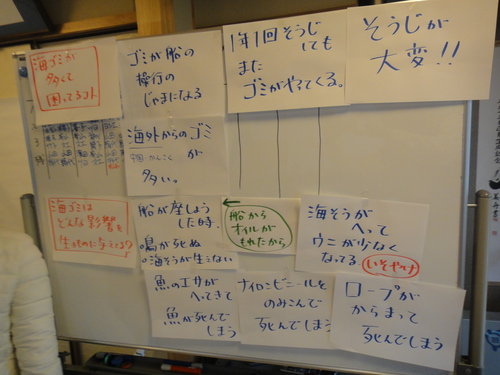 海ゴミが
多くて
困ってるコト
ゴミが船の
操行の
じゃまになる
1年1回そうじ
しても
また
ゴミがやってくる。
そうじが
大変!!
海外からのゴミ
中国 かんこく が
多い。
海ゴミは
どんな影響を
生きものに与えてる?
船が座しょう
した時、
○鳥が死ぬ
○海そうが生えない
船から
オイルが
もれたから
海そうが
へって
ウニが少なく
なってる
いそやけ
魚のエサが
へってきて
魚が死んで
しまう
ナイロンビニールを
のみこんで
死んでしまう
ロープが
からまって
死んでしまう